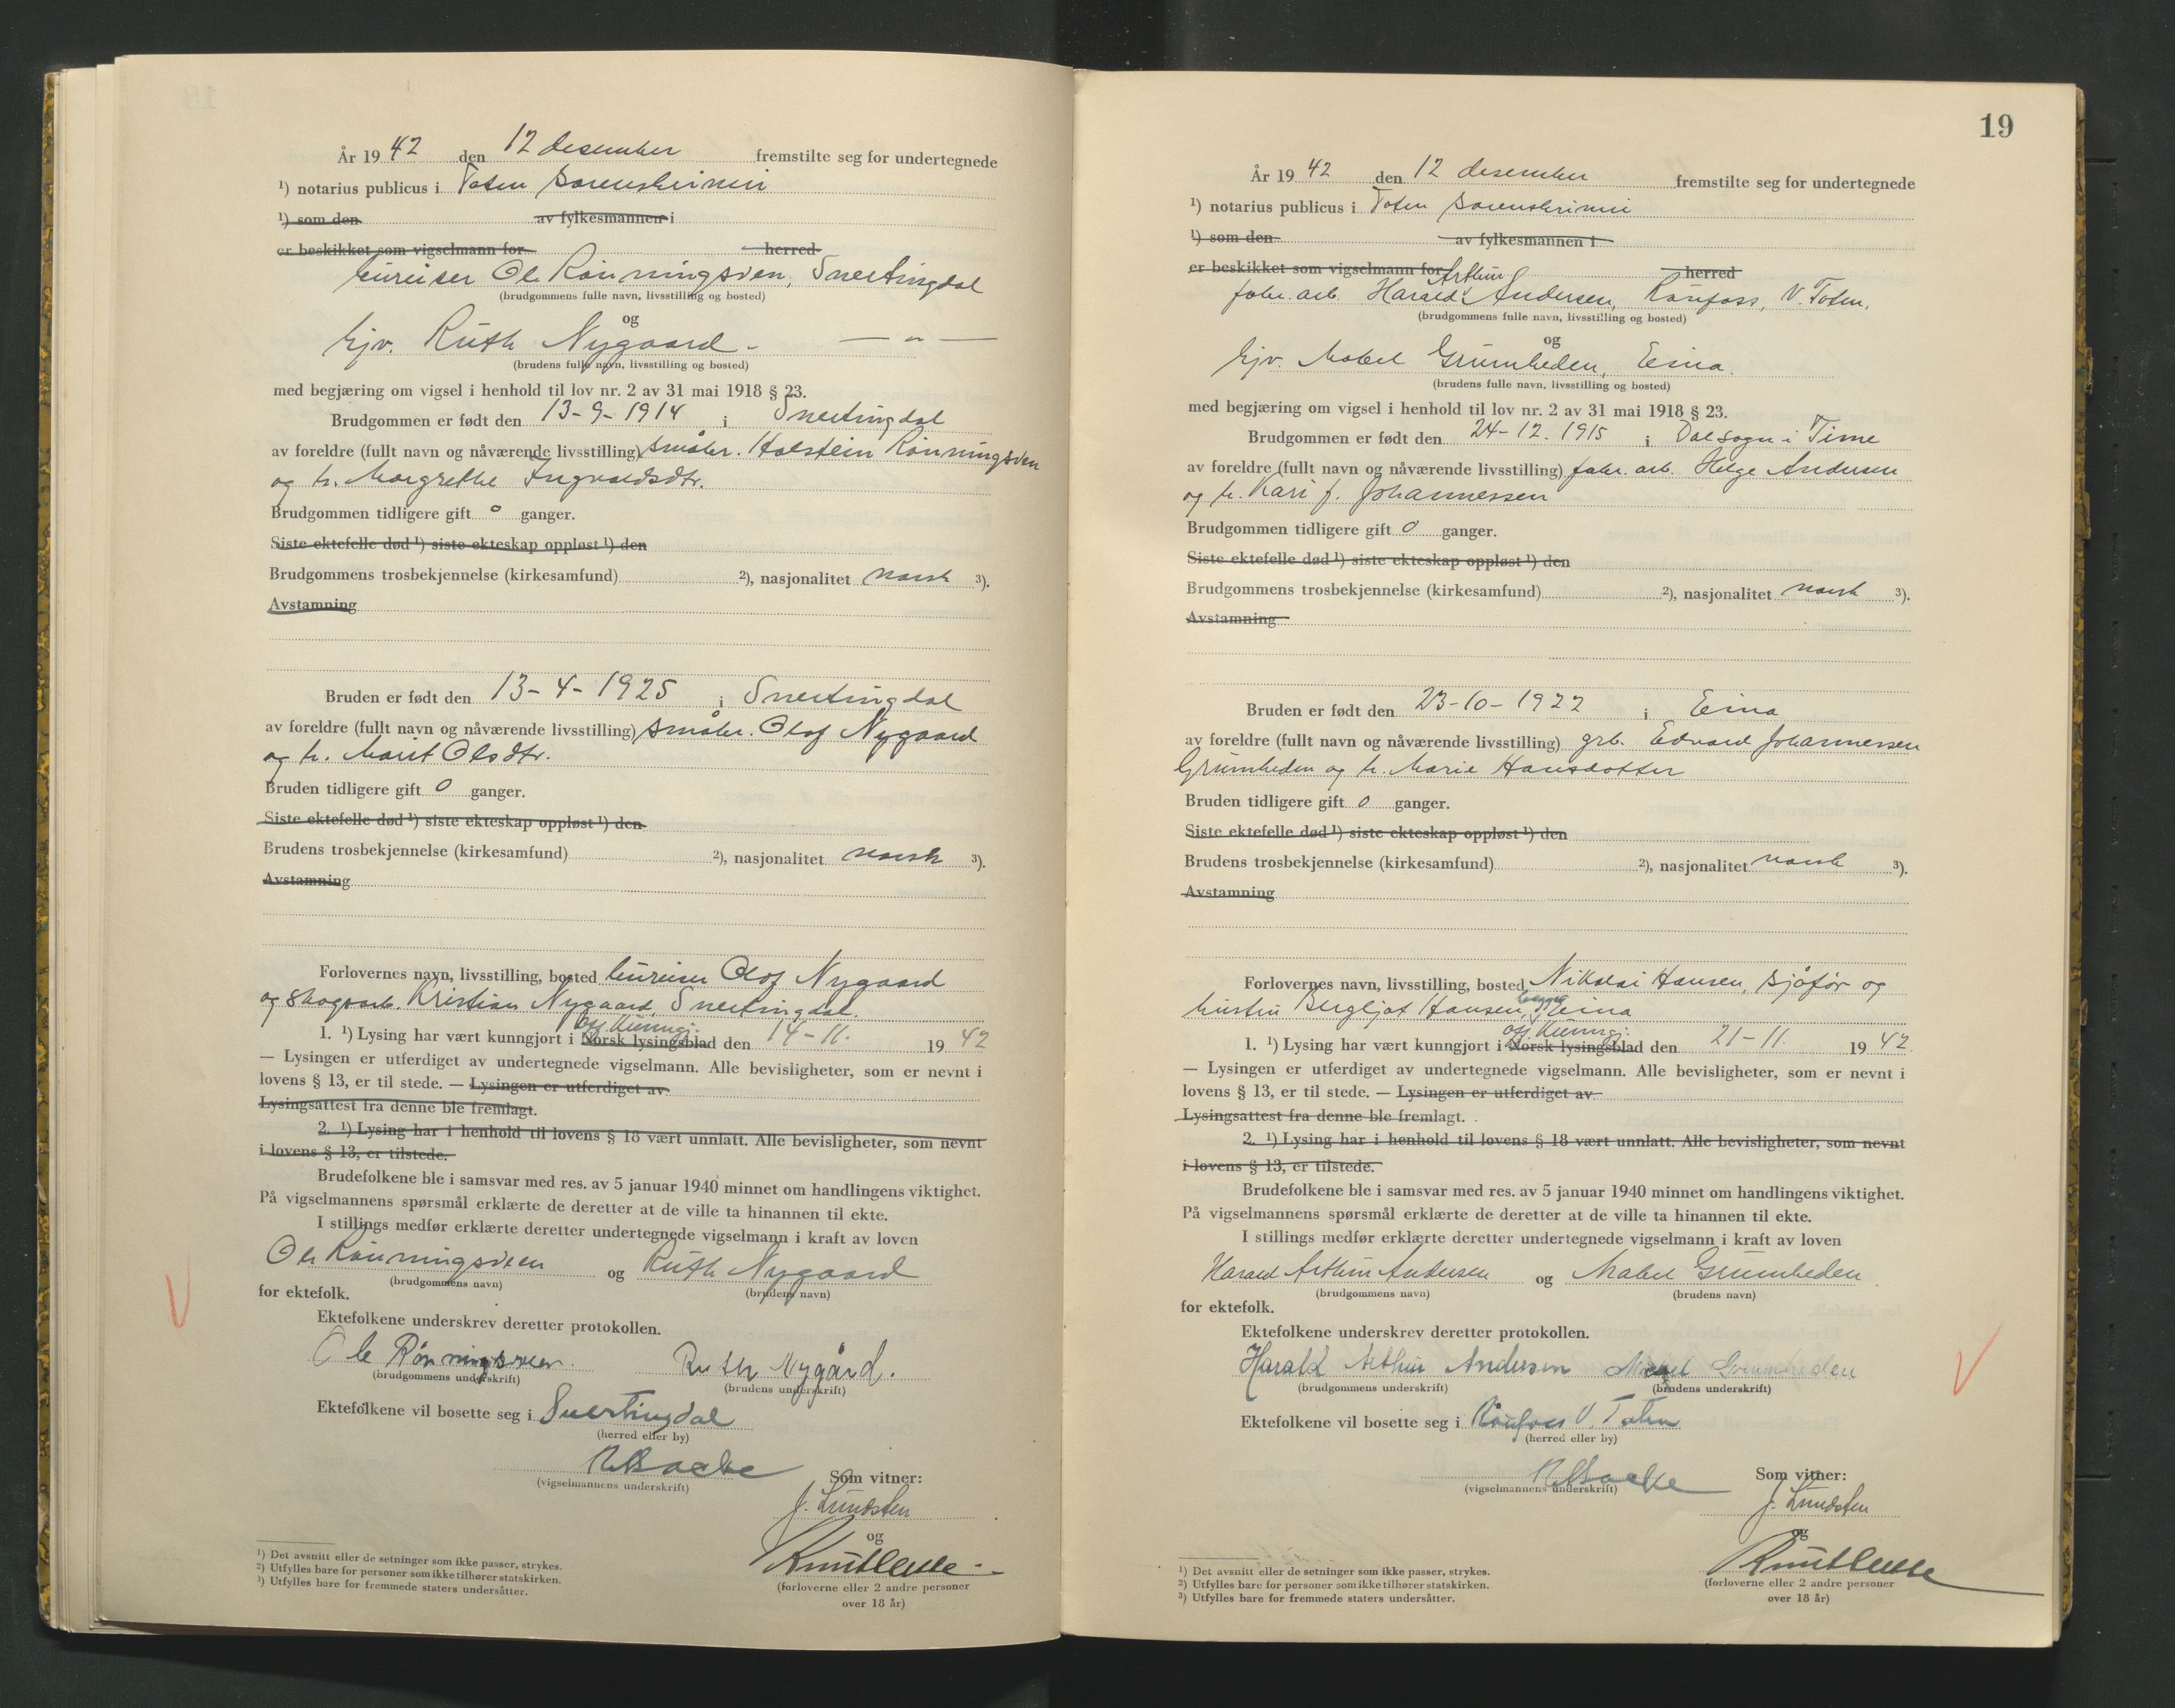 År 19 42 den 12 desember fremstilte seg for undertegnede
¹) notarius publicus i Toten sorenskriveri
¹) som den av fylkesmannen i
er beskikket som vigselmann for herred
Ole Rönningsveen, Snertingdal
(brudgommens fulle navn, livsstilling og bosted)
og
hjv. Ruth Nygaard - — " —
(brudens fulle navn, livsstilling og bosted)
med begjæring om vigsel i henhold til lov nr. 2 av 31 mai 1918 § 23.
Brudgommen er født den 13-9-1914 i Snertingdal
av foreldre (fullt navn og nåværende livsstilling) småbr. Holstein Rönningsveen
og h. Margrethe Ingvaldsdtr.
Brudgommen tidligere gift 0 ganger.
Siste ektefelle død ¹) siste ekteskap oppløst ¹) den
Brudgommens trosbekjennelse (kirkesamfund) ²), nasjonalitet norsk ³).
Avstamning
Bruden er født den 13-4-1925 i Snertingdal
av foreldre (fullt navn og nåværende livsstilling) småbr. Olof Nygaard
og h. Marit Olsdtr.
Bruden tidligere gift 0 ganger.
Siste ektefelle død ¹) siste ekteskap oppløst ¹) den
Brudens trosbekjennelse (kirkesamfund) ²), nasjonalitet norsk ³).
Avstamning
Forlovernes navn, livsstilling, bosted Olof Nygaard
og skogsarb. Kristian Nygaard, Snertingdal.
off. kunngj.
1. ¹) Lysing har vært kunngjort i Norsk lysingsblad den 14-11. 19 42
— Lysingen er utferdiget av undertegnede vigselmann. Alle bevisligheter, som er nevnt i
lovens § 13, er til stede. — Lysingen er utferdiget av
Lysingsattest fra denne ble fremlagt.
2. ¹) Lysing har i henhold til lovens § 18 vært unnlatt. Alle bevisligheter, som nevnt
i lovens § 13, er tilstede.
Brudefolkene ble i samsvar med res. av 5 januar 1940 minnet om handlingens viktighet.
På vigselmannens spørsmål erklærte de deretter at de ville ta hinannen til ekte.
I stillings medfør erklærte deretter undertegnede vigselmann i kraft av loven
Ole Rönningsveen og Ruth Nygaard
(brudgommens navn) (brudens navn)
for ektefolk.
Ektefolkene underskrev deretter protokollen.
Ole Rønningsveen. Ruth Nygård.
(brudgommens underskrift) (brudens underskrift)
Ektefolkene vil bosette seg i Snertingdal
(herred eller by)
(vigselmannens underskrift)
Som vitner:
J. Lundsten
og
(forloverne eller 2 andre personer
over 18 år)
¹) Det avsnitt eller de setninger som ikke passer, strykes.
²) Utfylles bare for personer som ikke tilhører statskirken.
³) Utfylles bare for fremmede staters undersåtter.
19
År 19 42 den 12 desember fremstilte seg for undertegnede
¹) notarius publicus i Toten sorenskriveri
¹) som den av fylkesmannen i
er beskikket som vigselmann for herred
Arthur
fabr. arb. Harald Andersen, Raufoss, V. Toten,
(brudgommens fulle navn, livsstilling og bosted)
og
hjv. Mabel Grumheden, Eina.
(brudens fulle navn, livsstilling og bosted)
med begjæring om vigsel i henhold til lov nr. 2 av 31 mai 1918 § 23.
Brudgommen er født den 24-12.1915 i Dalsogn i Time
av foreldre (fullt navn og nåværende livsstilling) fabr. arb. Helge Andersen
og h. Kari f. Johannessen
Brudgommen tidligere gift 0 ganger.
Siste ektefelle død ¹) siste ekteskap oppløst ¹) den
Brudgommens trosbekjennelse (kirkesamfund) ²), nasjonalitet norsk ³).
Avstamning
Bruden er født den 23-10-1922 i Eina
av foreldre (fullt navn og nåværende livsstilling) grb. Edvard Johannessen
Grumheden og h. Marie Hansdotter
Bruden tidligere gift 0 ganger.
Siste ektefelle død ¹) siste ekteskap oppløst ¹) den
Brudens trosbekjennelse (kirkesamfund) ²), nasjonalitet norsk ³).
Avstamning
Forlovernes navn, livsstilling, bosted Nikolai Hansen, sjåför og
hustru Bergljot Hansen, begge Eina
off. kunngj.
1. ¹) Lysing har vært kunngjort i Norsk lysingsblad den 21-11. 19 42.
— Lysingen er utferdiget av undertegnede vigselmann. Alle bevisligheter, som er nevnt i
lovens § 13, er til stede. — Lysingen er utferdiget av
Lysingsattest fra denne ble fremlagt.
2. ¹) Lysing har i henhold til lovens § 18 vært unnlatt. Alle bevisligheter, som nevnt
i lovens § 13, er tilstede.
Brudefolkene ble i samsvar med res. av 5 januar 1940 minnet om handlingens viktighet.
På vigselmannens spørsmål erklærte de deretter at de ville ta hinannen til ekte.
I stillings medfør erklærte deretter undertegnede vigselmann i kraft av loven
Harald Arthur Andersen og Mabel Grumheden
(brudgommens navn) (brudens navn)
for ektefolk.
Ektefolkene underskrev deretter protokollen.
Harald Arthur Andersen Mabel Grumheden
(brudgommens underskrift) (brudens underskrift)
Ektefolkene vil bosette seg i Raufoss V. Toten
(herred eller by)
(vigselmannens underskrift)
Som vitner:
J. Lundsten
og
(forloverne eller 2 andre personer
over 18 år)
¹) Det avsnitt eller de setninger som ikke passer, strykes.
²) Utfylles bare for personer som ikke tilhører statskirken.
³) Utfylles bare for fremmede staters undersåtter.